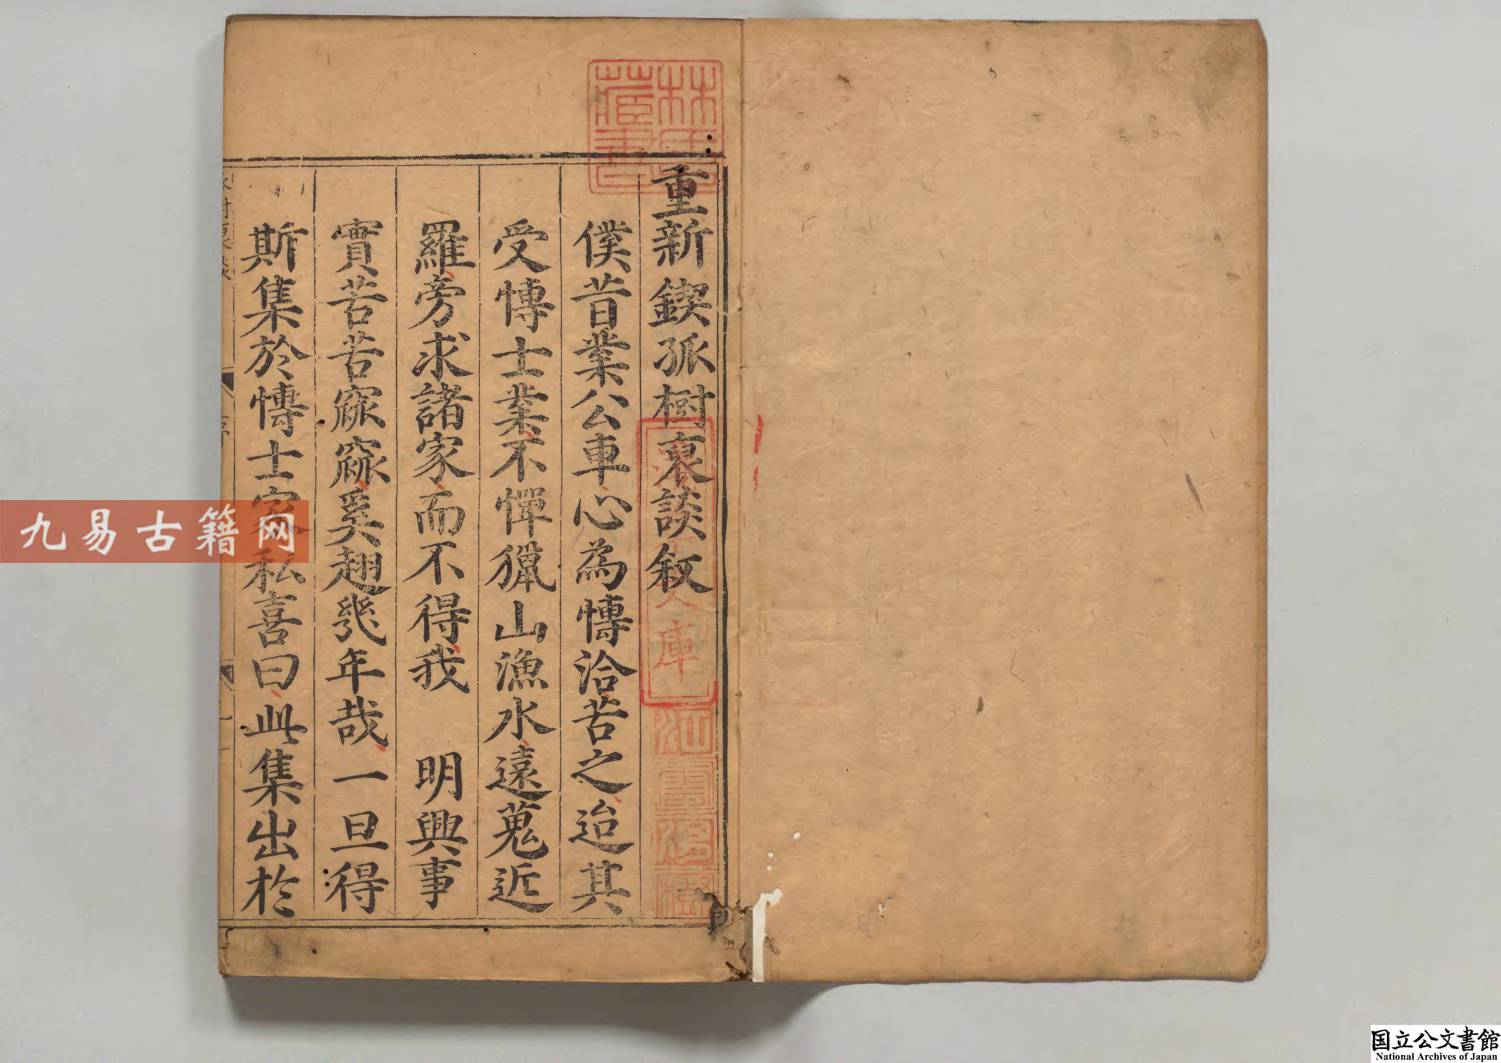 重新鍥孤樹裒談叙
僕昔業公車心為愽洽苦之迨其
受愽士業不憚獵山漁水遠蒐近
羅旁求諸家而不得我　明興事
實苦苦窾窾奚趐幾年哉一旦得
斯集於愽士家私喜曰此集出於
林氏藏書
庫
江雲渭樹
九易古籍网
国立公文書館
National Archives of Japan